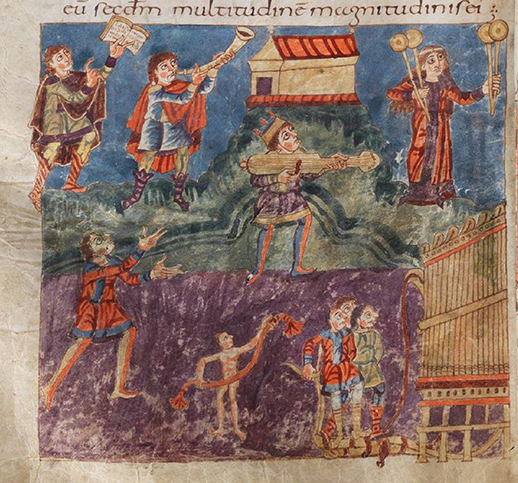 eū secdm multitudinē magnitudinis ei ;